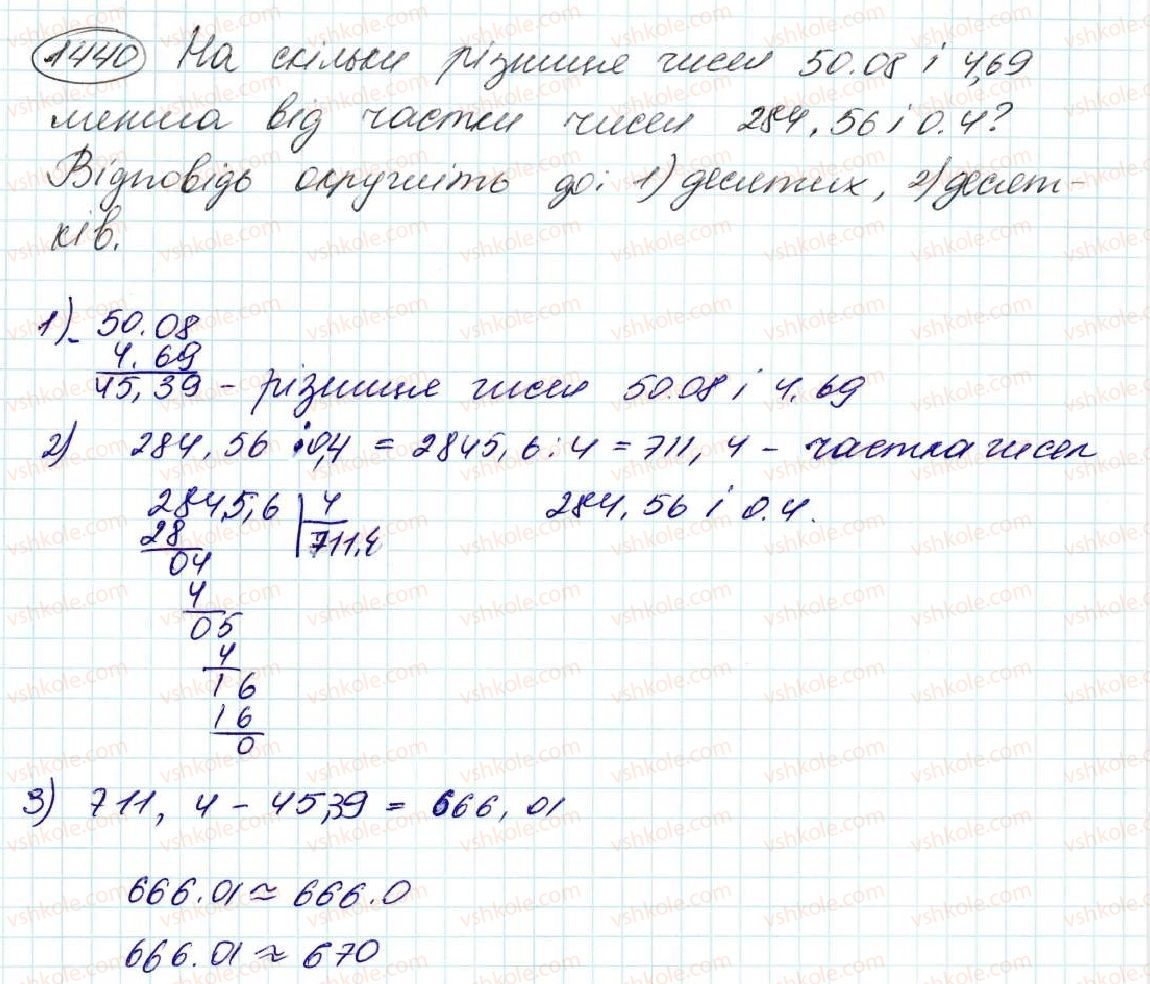 1440 На скільки різниця чисел 50.08 і 4,69
менша від частки чисел 284,56 і 0.4?
Відповідь округліть до: 1) десятих, 2) десят-
ків.
1) - 50.08
4.69
45,39 - різниця чисел 50.08 і 4.69
2) 284,56 : 0,4 = 2845,6 : 4 = 711,4 - частка чисел
284,56 і 0.4.
2845,6 | 4
28 711,4
04
4
05
4
16
16
0
3) 711,4 - 45,39 = 666,01
666.01 ≈ 666.0
666.01 ≈ 670